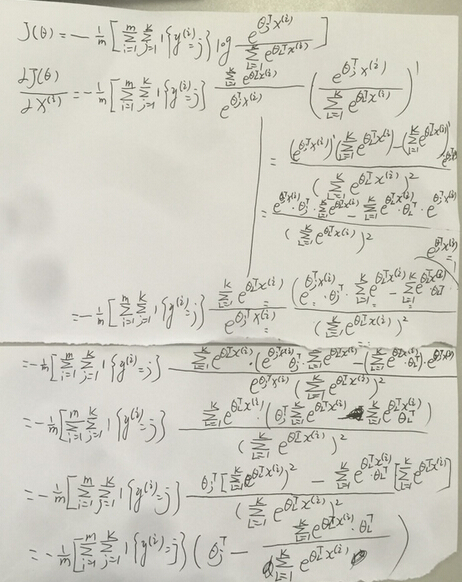 J(θ) = -1/m [ Σ_{i=1}^{m} Σ_{j=1}^{k} 1{y^{(i)}=j} log e^{θ_j^T x^{(i)}} / Σ_{L=1}^{k} e^{θ_L^T x^{(i)}} ]
∂J(θ)/∂x^{(i)} = -1/m [ Σ_{i=1}^{m} Σ_{j=1}^{k} 1{y^{(i)}=j} ] Σ_{L=1}^{k} e^{θ_L^T x^{(i)}} / e^{θ_j^T x^{(i)}} ( e^{θ_j^T x^{(i)}} / Σ_{L=1}^{k} e^{θ_L^T x^{(i)}} )'
= (e^{θ_j^T x^{(i)}})' (Σ_{L=1}^{k} e^{θ_L^T x^{(i)}}) - (Σ_{L=1}^{k} e^{θ_L^T x^{(i)}})' e^{θ_j^T x^{(i)}} / (Σ_{L=1}^{k} e^{θ_L^T x^{(i)}})^2
= e^{θ_j^T x^{(i)}} · θ_j^T · Σ_{L=1}^{k} e^{θ_L^T x^{(i)}} - Σ_{L=1}^{k} e^{θ_L^T x^{(i)}} · θ_L^T · e^{θ_j^T x^{(i)}} / (Σ_{L=1}^{k} e^{θ_L^T x^{(i)}})^2
= -1/m [ Σ_{i=1}^{m} Σ_{j=1}^{k} 1{y^{(i)}=j} Σ_{L=1}^{k} e^{θ_L^T x^{(i)}} / e^{θ_j^T x^{(i)}} (e^{θ_j^T x^{(i)}} · θ_j^T · Σ_{L=1}^{k} e^{θ_L^T x^{(i)}} - Σ_{L=1}^{k} e^{θ_L^T x^{(i)}} θ_L^T e^{θ_j^T x^{(i)}}) / (Σ_{L=1}^{k} e^{θ_L^T x^{(i)}})^2
= -1/m [ Σ_{i=1}^{m} Σ_{j=1}^{k} 1{y^{(i)}=j} ] Σ_{L=1}^{k} e^{θ_L^T x^{(i)}} · (e^{θ_j^T x^{(i)}} θ_j^T · Σ_{L=1}^{k} e^{θ_L^T x^{(i)}} - (Σ_{L=1}^{k} e^{θ_L^T x^{(i)}} · θ_L^T) · e^{θ_j^T x^{(i)}}) / e^{θ_j^T x^{(i)}} (Σ_{L=1}^{k} e^{θ_L^T x^{(i)}})^2
= -1/m [ Σ_{i=1}^{m} Σ_{j=1}^{k} 1{y^{(i)}=j} ] Σ_{L=1}^{k} e^{θ_L^T x^{(i)}} · (θ_j^T Σ_{L=1}^{k} e^{θ_L^T x^{(i)}} - Σ_{L=1}^{k} e^{θ_L^T x^{(i)}} θ_L^T) / (Σ_{L=1}^{k} e^{θ_L^T x^{(i)}})^2
= -1/m [ Σ_{i=1}^{m} Σ_{j=1}^{k} 1{y^{(i)}=j} ] θ_j^T [Σ_{L=1}^{k} e^{θ_L^T x^{(i)}}]^2 - Σ_{L=1}^{k} e^{θ_L^T x^{(i)}} · θ_L^T [Σ_{L=1}^{k} e^{θ_L^T x^{(i)}}] / (Σ_{L=1}^{k} e^{θ_L^T x^{(i)}})^2
= -1/m [ Σ_{i=1}^{m} Σ_{j=1}^{k} 1{y^{(i)}=j} ] ( θ_j^T - Σ_{L=1}^{k} e^{θ_L^T x^{(i)}} · θ_L^T / Σ_{L=1}^{k} e^{θ_L^T x^{(i)}} )